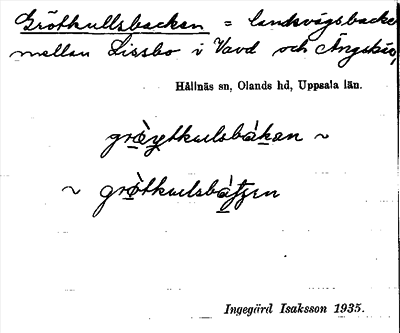 Grötkullsbacken = landsvägsbacke
mellan Lissbo i Vavd och Ängskär,
Hållnäs sn, Olands hd, Uppsala län.
græ̀ytkulsbàkan ~
~ grø̀tkulsbàtʃen
Ingegärd Isaksson 1935.